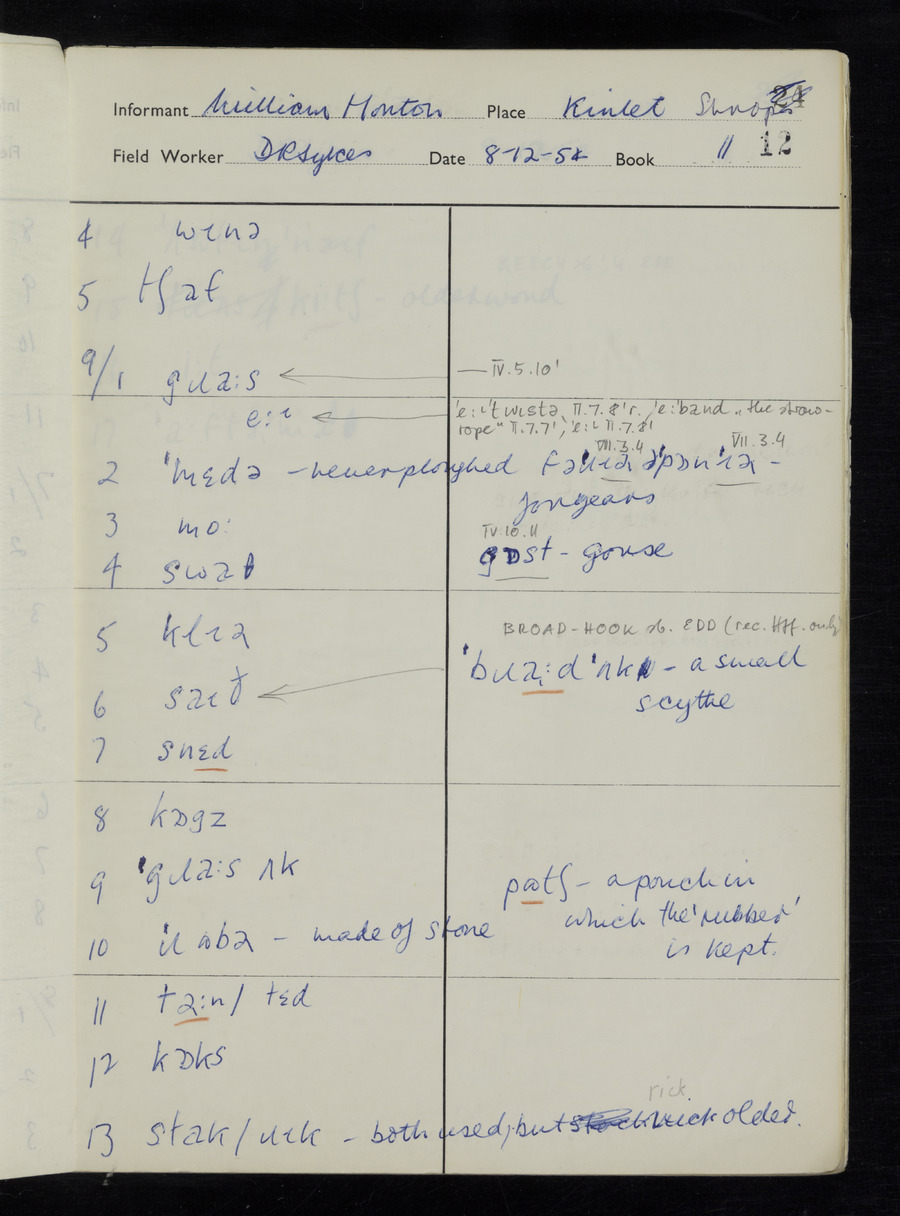 Informant William Honton Place Kinlet Shrops 24
Field Worker DRSykes Date 8-12-54 Book 11 12
4 wɪnə
5 tʃaf
9/1 gɹaːs — IV.5.10'
'eːɪ'twɪstə, II.7.8'r. 'eːband "the straw-
eːɪ
rope" II.7.7', 'eːɪ II.7.8'
VII.3.4 VII.3.4
2 'mɛdə - never ploughed
for years
3 moː IV.10.11
4 swaθ gɒst - gorse
5 klɪə BROAD-HOOK sb. EDD (rec. Hff. only)
'bɹaːd 'ʌk - a small
scythe
6 saɪð
7 snɛd
8 kɒgz
9 'gɹaːs ʌk
potʃ - a pouch in
which the 'rubber'
is kept.
10 - made of stone
11 təːn / tɛd
12 kɒks
rick
13 stak / ɹɪk - both used, but ruck older.